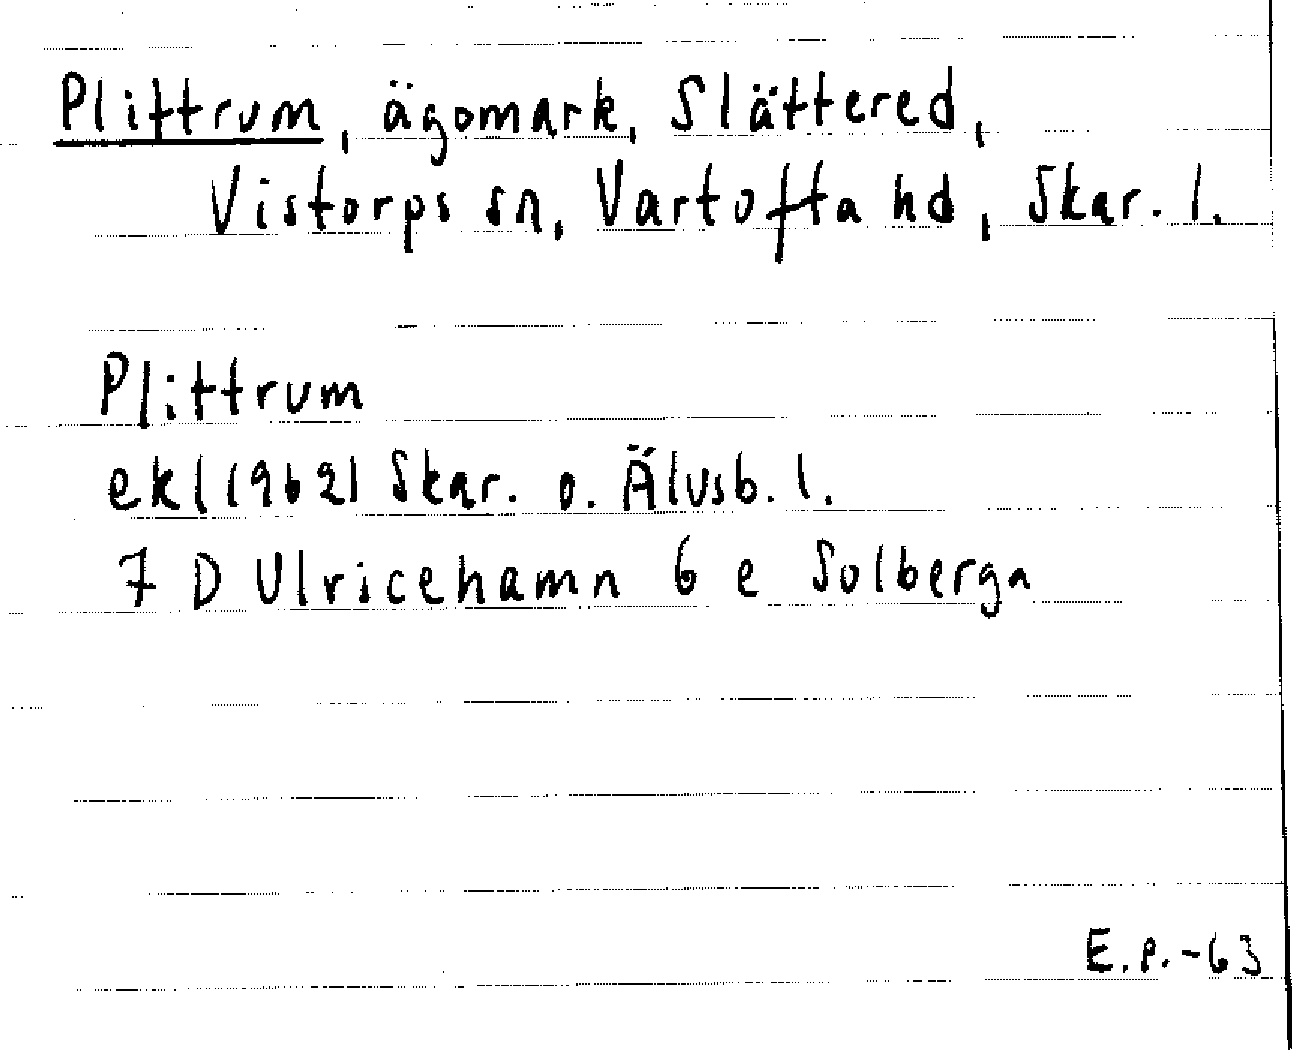 Plittrum, ägomark, Slättered,
Vistorps sn, Vartofta hd, Skar. l.
Plittrum
ekl (1962) Skar. o. Älvsb. l.
7 D Ulricehamn 6 e Solberga
E.P.-63